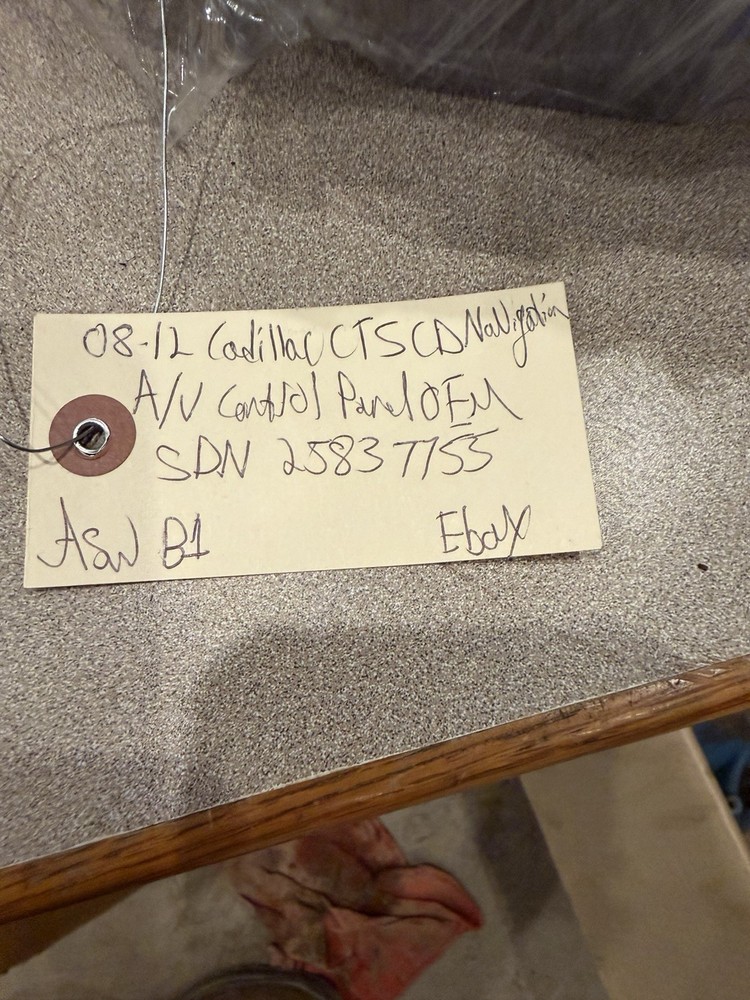 08-12 Cadillac CTS CD NaVigation
A/V Control Panel OEM
SDN 25837755
ASW B1
Ebay